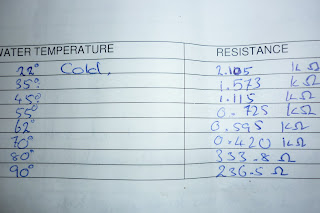 WATER TEMPERATURE RESISTANCE
22° Cold, 2.105 kΩ
35° 1.573 kΩ
45° 1.115 kΩ
55° 0.725 kΩ
62° 0.595 kΩ
70° 0.420 kΩ
80° 333.8 Ω
90° 236.5 Ω